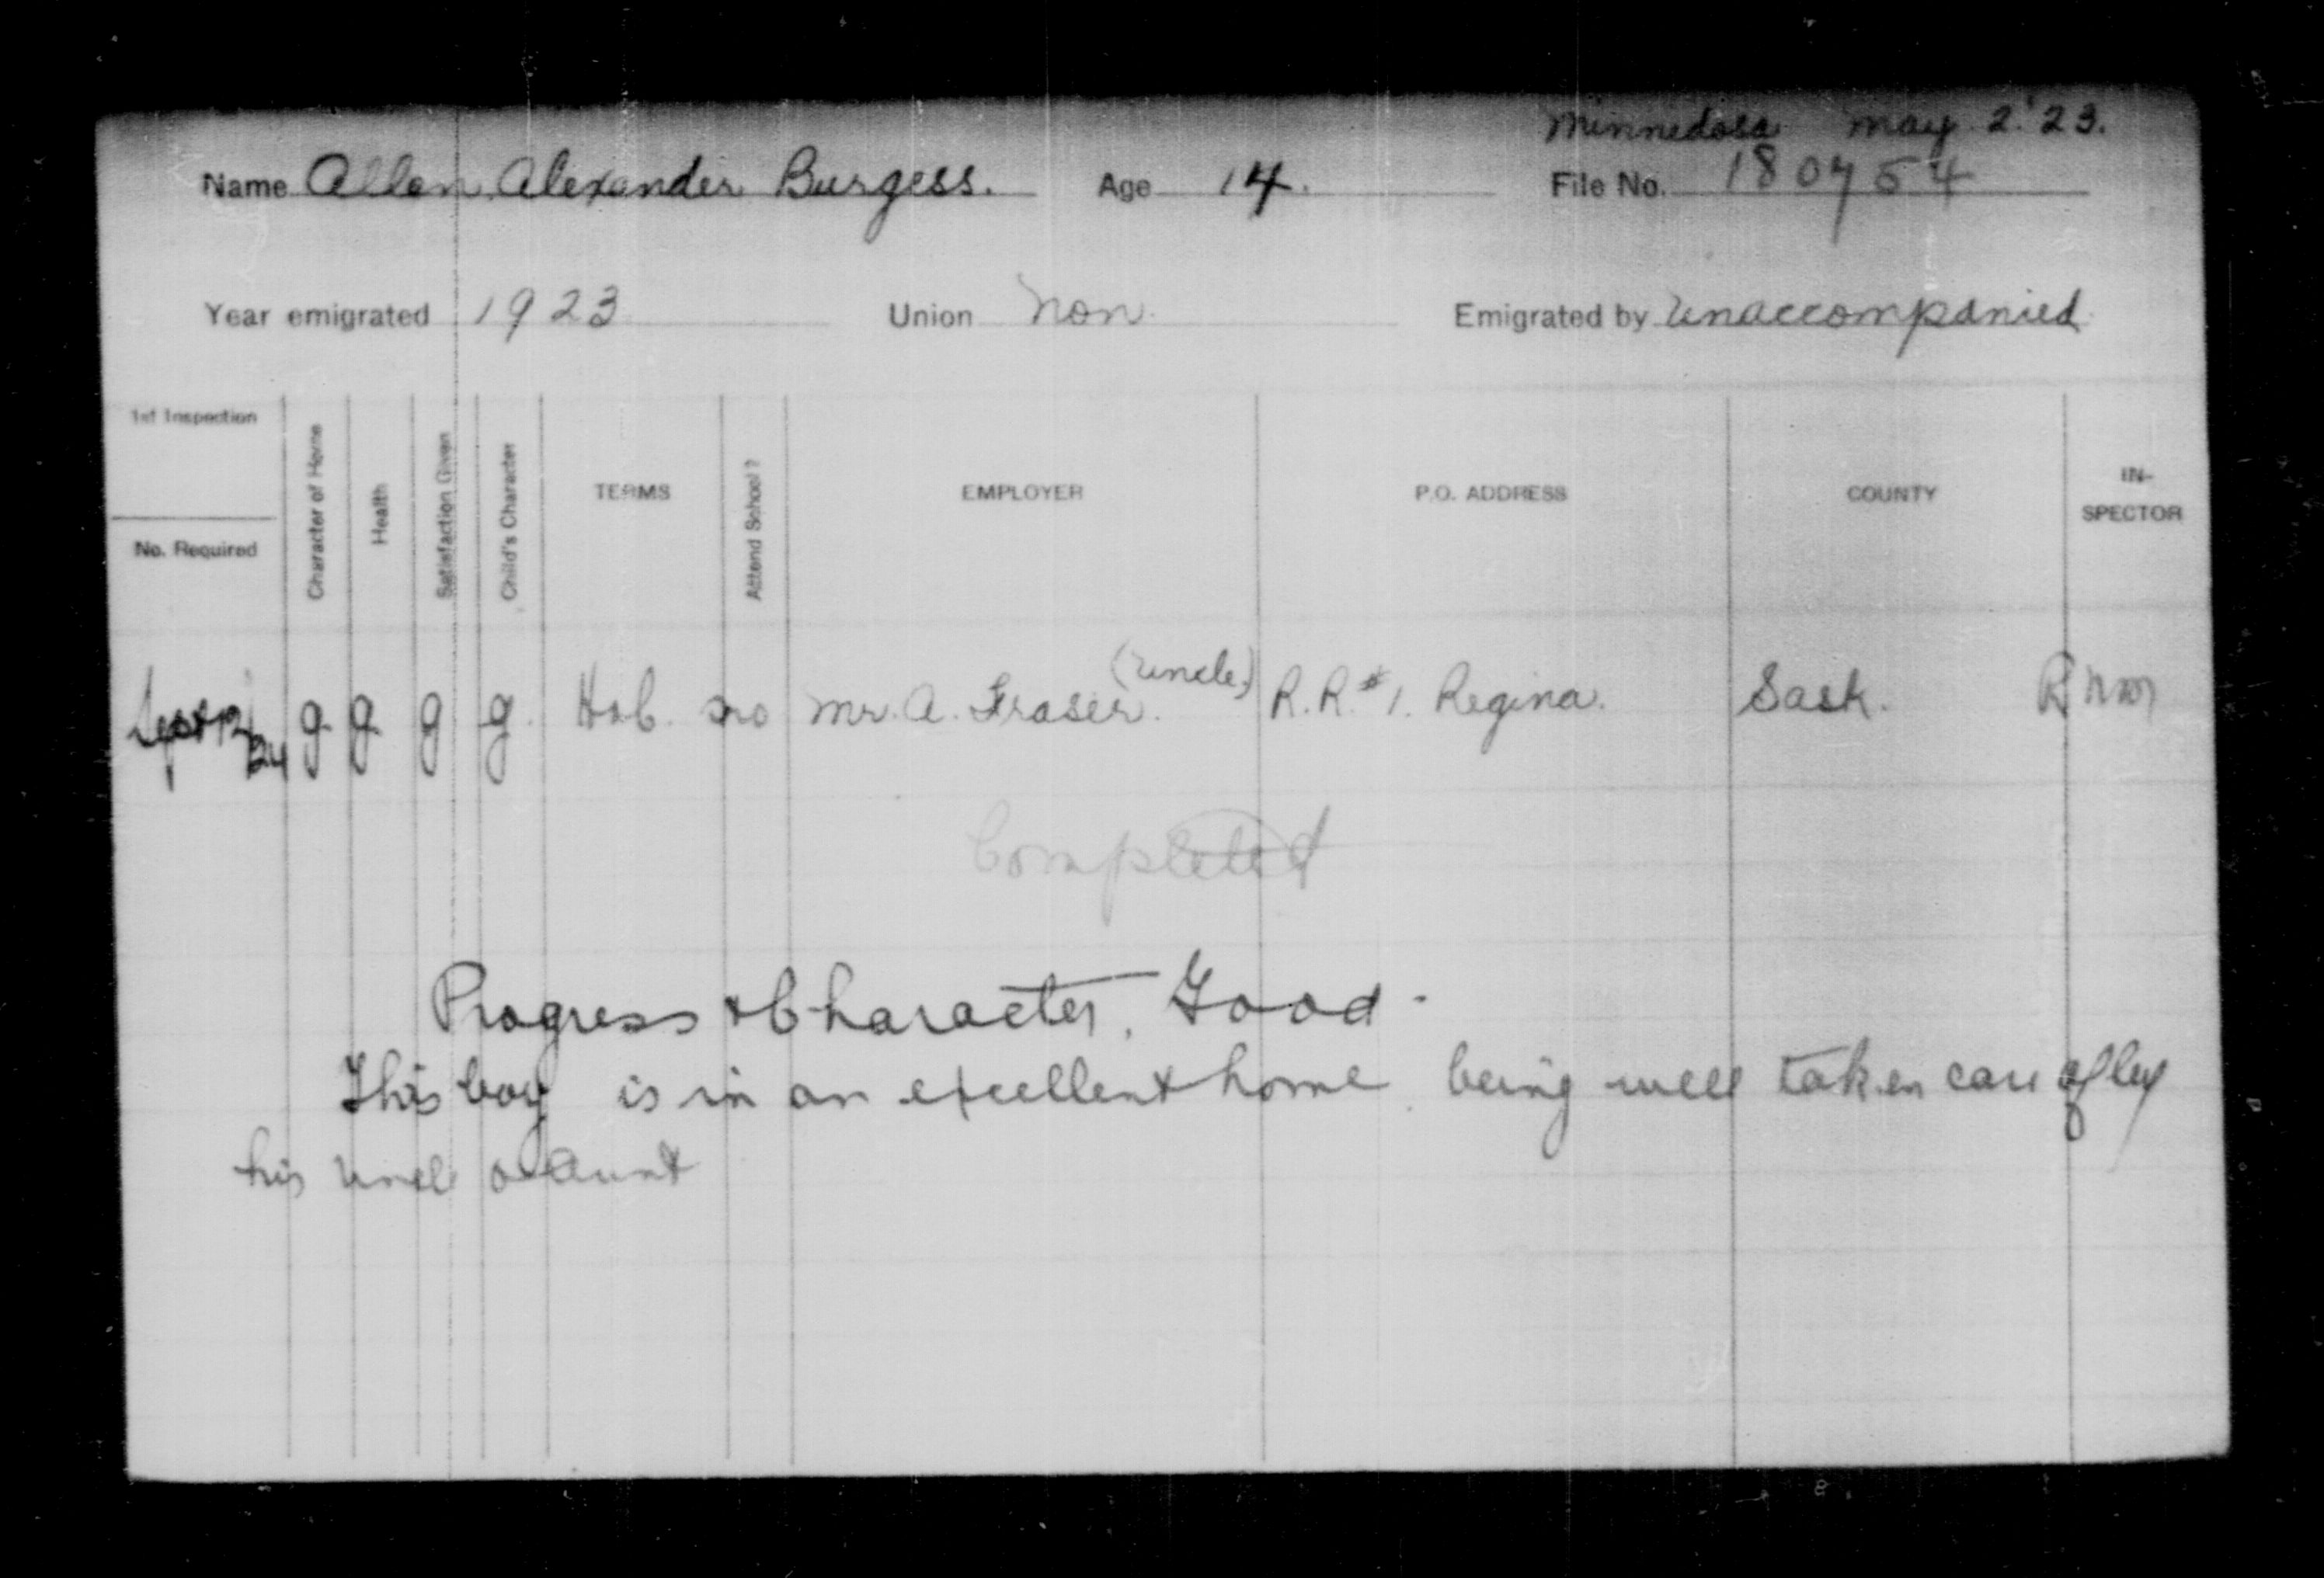 Minnedosa May 2. '23.
Name Allan Alexander Burgess. Age 14. File No. 180754
Year emigrated 1923 Union Non. Emigrated by Unaccompanied
1st Inspection
No. Required
Character of Home
Health
Satisfaction Given
Child's Character
TERMS
Attend School?
EMPLOYER
P.O. ADDRESS
COUNTY
IN-
SPECTOR
Sept 12/24 g g g g. no Mr. A. Fraser. (Uncle) R.R. #1. Regina. Sask.
Completed
Progress & Character. Good.
This boy is in an excellent home being well taken care of by
his uncle & aunt